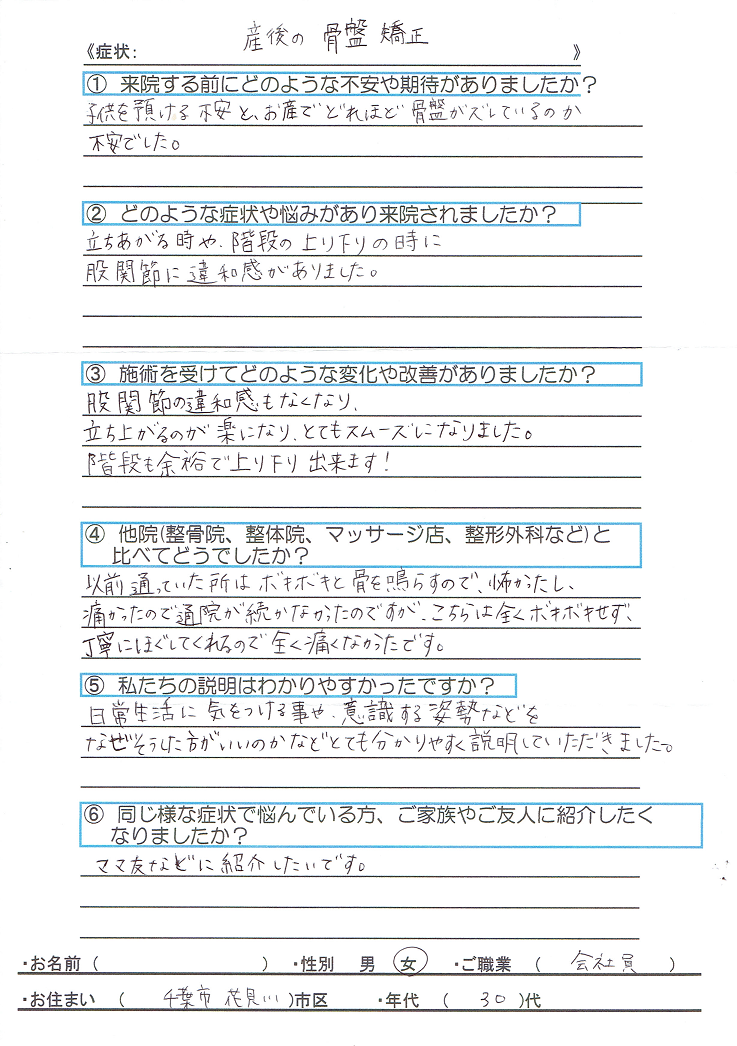 《症状: 産後の 骨盤 矯正 》
① 来院する前にどのような不安や期待がありましたか？
子供を預ける不安と、お産でどれほど骨盤がズレているのか
不安でした。
② どのような症状や悩みがあり来院されましたか？
立ちあがる時や、階段の上り下りの時に
股関節に違和感がありました。
③ 施術を受けてどのような変化や改善がありましたか？
股関節の違和感もなくなり、
立ち上がるのが楽になり、とてもスムーズになりました。
階段も余裕で上り下り出来ます！
④ 他院(整骨院、整体院、マッサージ店、整形外科など)と
比べてどうでしたか？
以前通っていた所はボキボキと骨を鳴らすので、怖かったし、
痛かったので通院が続かなかったのですが、こちらは全くボキボキせず、
丁寧にほぐしてくれるので全く痛くなかったです。
⑤ 私たちの説明はわかりやすかったですか？
日常生活に気をつける事や、意識する姿勢などを
なぜそうした方がいいのかなどとても分かりやすく説明していただきました。
⑥ 同じ様な症状で悩んでいる方、ご家族やご友人に紹介したく
なりましたか？
ママ友などに紹介したいです。
・お名前 (　) ・性別 男 女 ・ご職業 ( 会社員 )
・お住まい ( 千葉市 花見川 )市区 ・年代 ( 30 )代